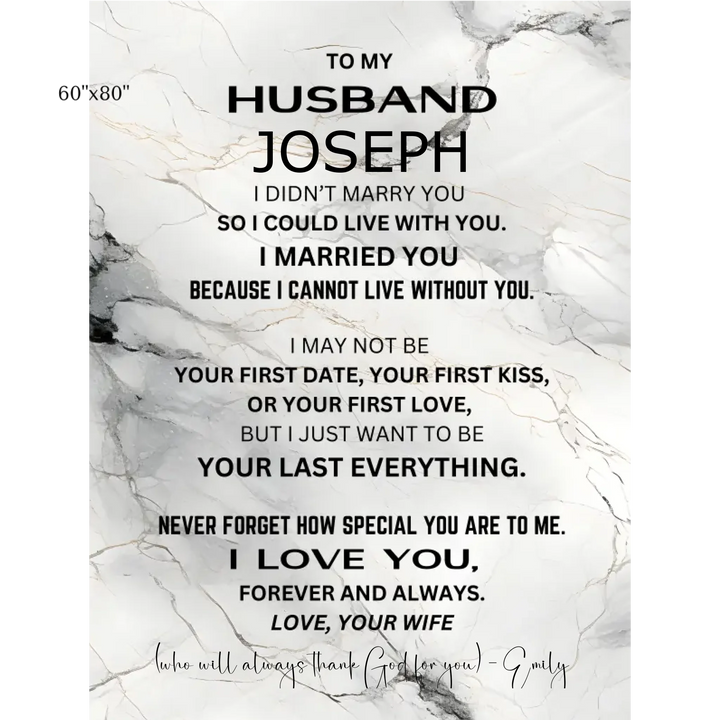 TO MY
60"x80"
HUSBAND
JOSEPH
I DIDN’T MARRY YOU
SO I COULD LIVE WITH YOU.
I MARRIED YOU
BECAUSE I CANNOT LIVE WITHOUT YOU.
I MAY NOT BE
YOUR FIRST DATE, YOUR FIRST KISS,
OR YOUR FIRST LOVE,
BUT I JUST WANT TO BE
YOUR LAST EVERYTHING.
NEVER FORGET HOW SPECIAL YOU ARE TO ME.
I LOVE YOU,
FOREVER AND ALWAYS.
LOVE, YOUR WIFE
(who will always thank God for you) - Emily